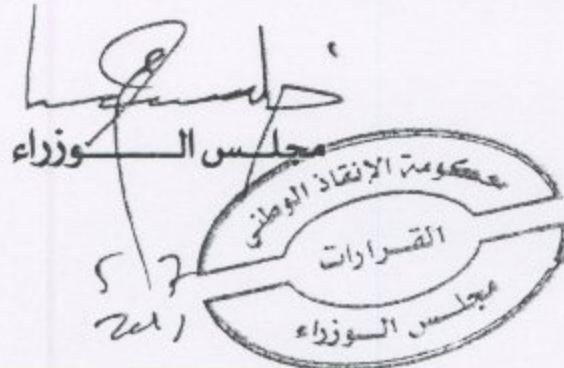 مجلس الوزراء
حكومة الإنقاذ الوطني
القرارات
مجلس الوزراء